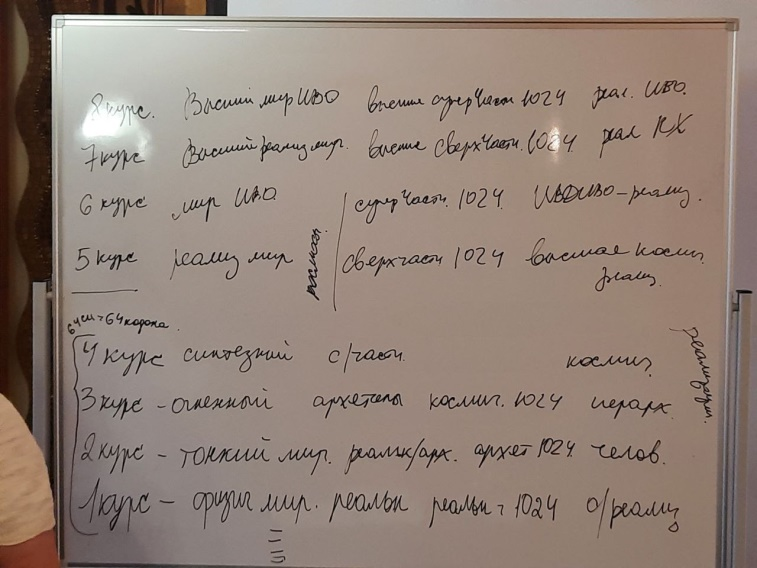 8 курс. Высший мир ИВО высшие супер части 1024 реал. ИВО.
7 курс Высший реализ мир. высшие сверх части. 1024 реал ИХ
6 курс мир ИВО супер части. 1024. ИВДИВО-реализ.
5 курс реализ мир сверхчасти 1024 высшая космич.
реализ.
64 = 64
4 курс синтезный с/части. космич.
3 курс - огненный архетипы космич. 1024 иерарх.
реализации.
2 курс - тонкий мир. реальн/арх. архет 1024 челов.
1 курс - физич мир. реальн реальн = 1024 о/реализ